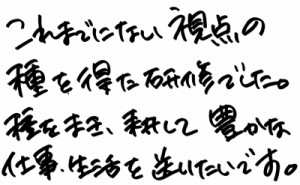 これまでにない視点の
種を得た研修でした。
種をまき、耕して豊かな
仕事、生活を送りたいです。